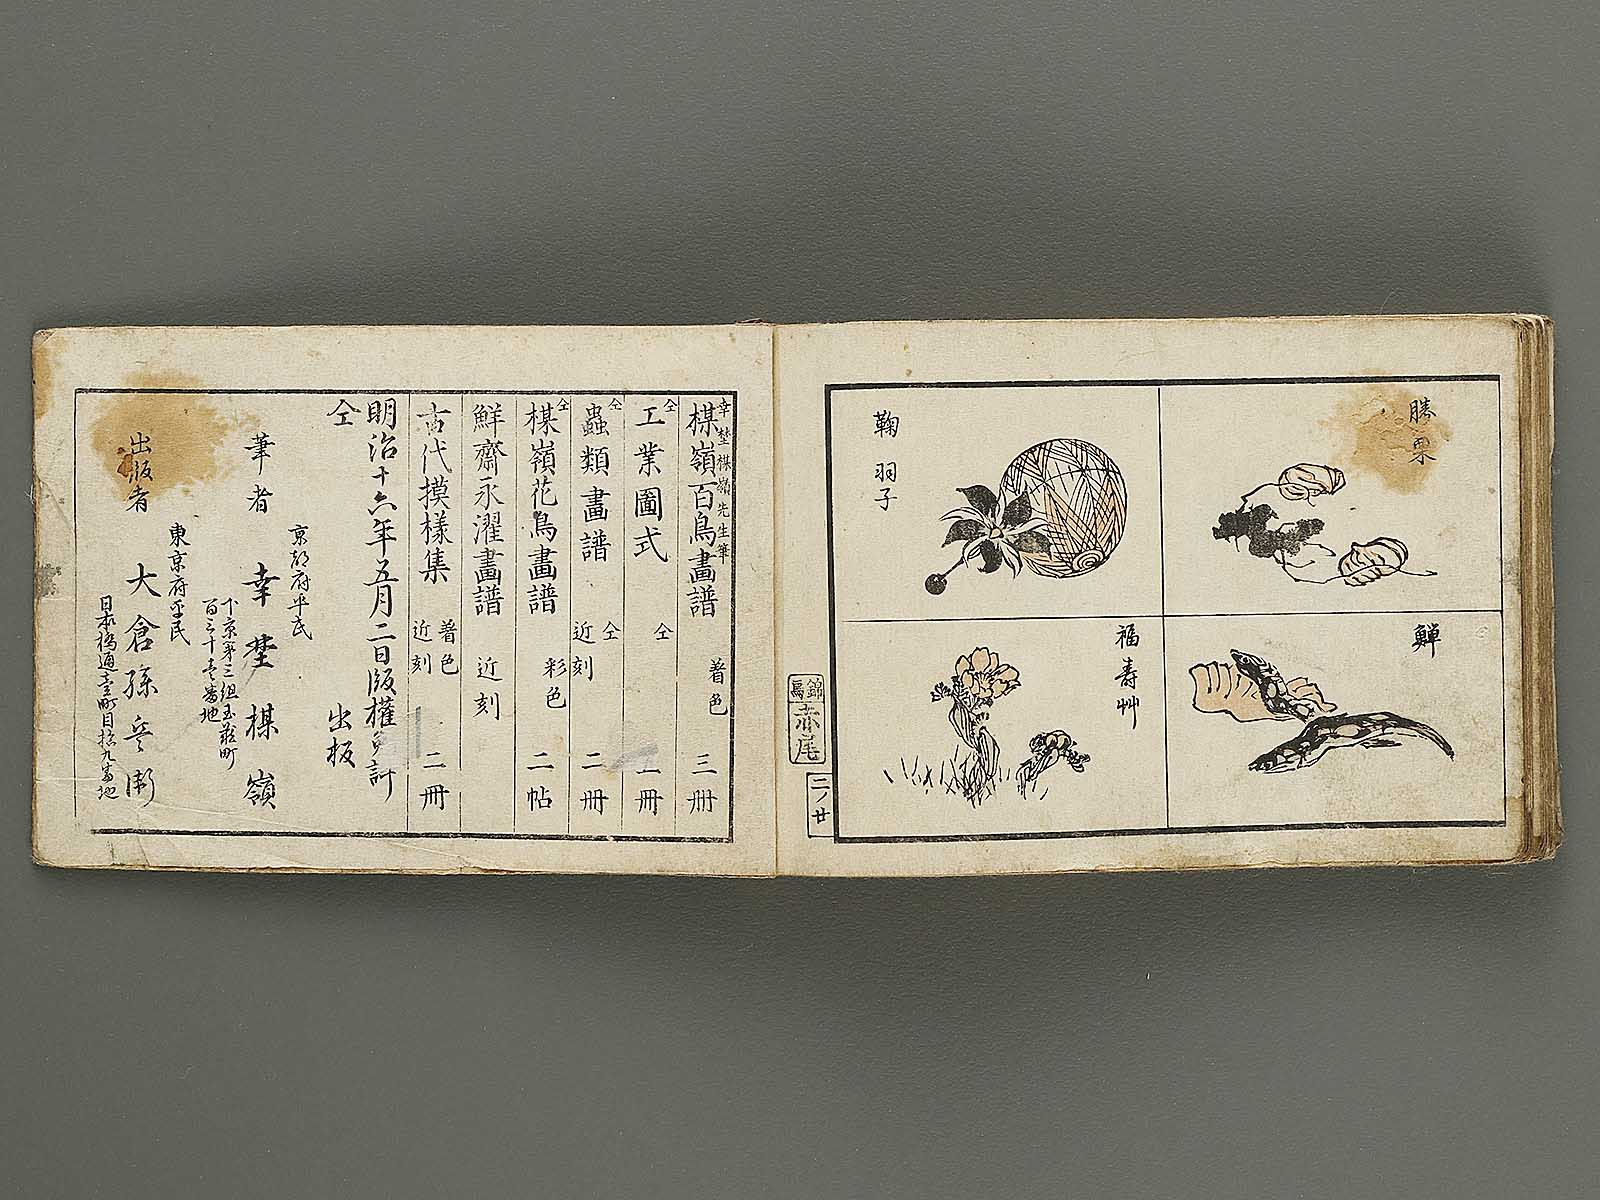 勝栗
鞠
羽子
鱓
福壽艸
錦
赤尾
二ノ廿
幸埜楳嶺先生筆
楳嶺百鳥畫譜 着色 三冊
仝
工業圖式 仝 二冊
仝
蟲類畫譜 仝 近刻 二冊
仝
楳嶺花鳥畫譜 彩色 二帖
鮮齋永濯畫譜 近刻
古代摸様集 着色 近刻 二冊
明治十六年五月二日版權免許
仝 出板
京都府平民
下京第三組玉藏町
百三十壱番地
筆者 幸埜楳嶺
東京府平民
日本橋通壹町目拾九番地
出版者 大倉孫兵衛